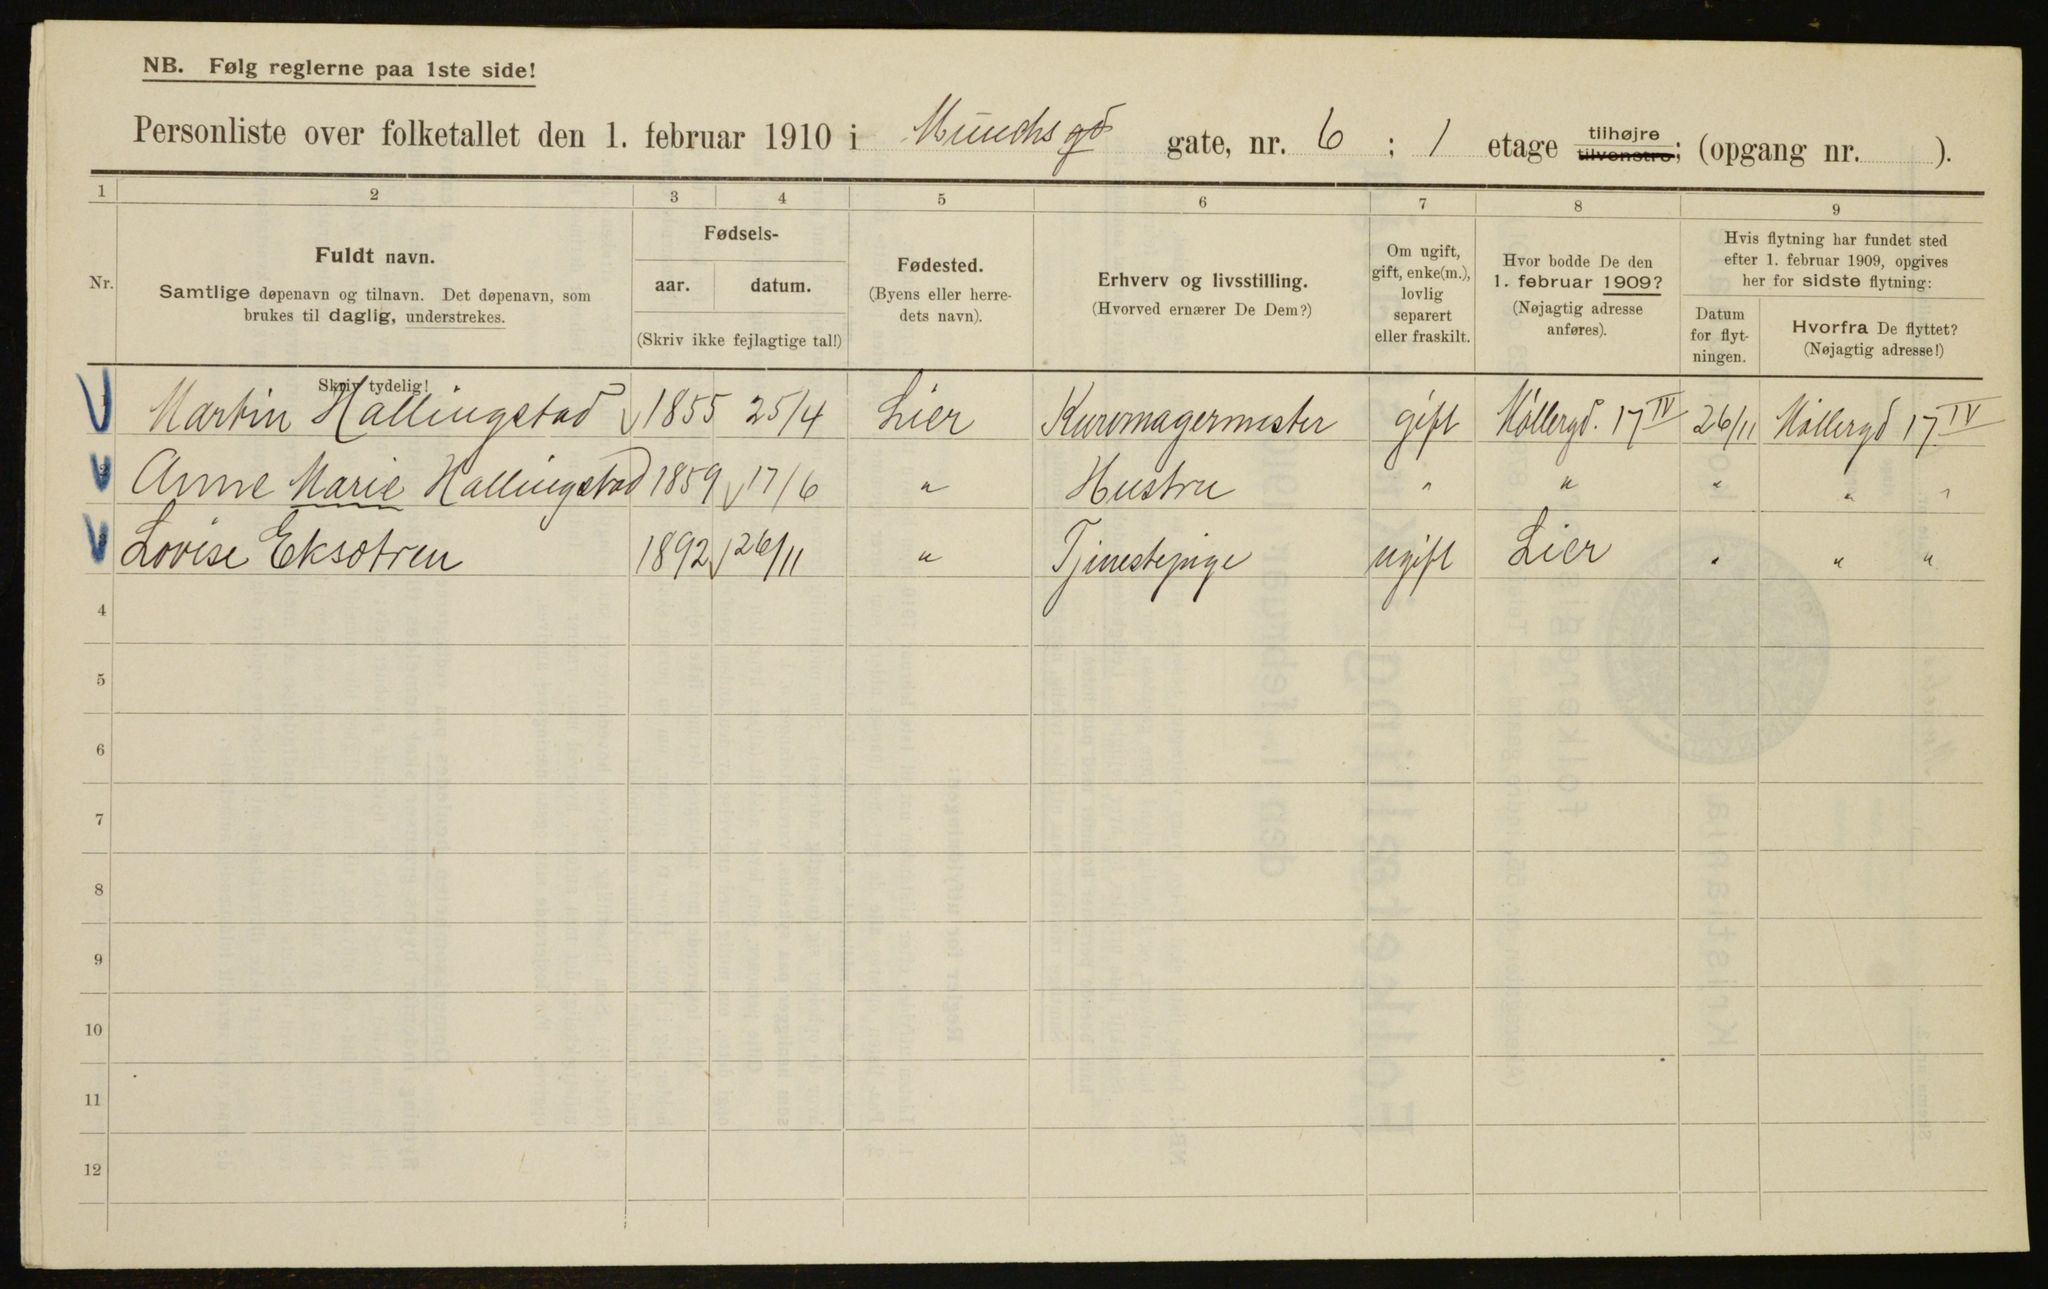 NB. Følg reglerne paa 1ste side!
Personliste over folketallet den 1. februar 1910 i Munchs gd gate, nr. 6 ; 1 etage tilhøjre tilvenstre; (opgang nr. ).
1 2 3 4 5 6 7 8 9
Nr.
Fuldt navn.
Samtlige døpenavn og tilnavn. Det døpenavn, som
brukes til daglig, understrekes.
Skriv tydelig!
Fødsels-
aar. datum.
(Skriv ikke fejlagtige tal!)
Fødested.
(Byens eller herre-
dets navn).
Erhverv og livsstilling.
(Hvorved ernærer De Dem?)
Om ugift,
gift, enke(m.),
lovlig
separert
eller fraskilt.
Hvor bodde De den
1. februar 1909?
(Nøjagtig adresse
anføres).
Hvis flytning har fundet sted
efter 1. februar 1909, opgives
her for sidste flytning:
Datum
for flyt-
ningen.
Hvorfra De flyttet?
(Nøjagtig adresse!)
Martin Hallingstad 1855 25/4 Lier Kurvmagermester gift Møllergd. 17 IV 26/11 Møllergd 17 IV
Anne Marie Hallingstad 1859 17/6 " Hustru " " " " "
Lovise Eksotren 1892 26/11 " Tjenestepige ugift Lier " " "
4
5
6
7
8
9
10
11
12